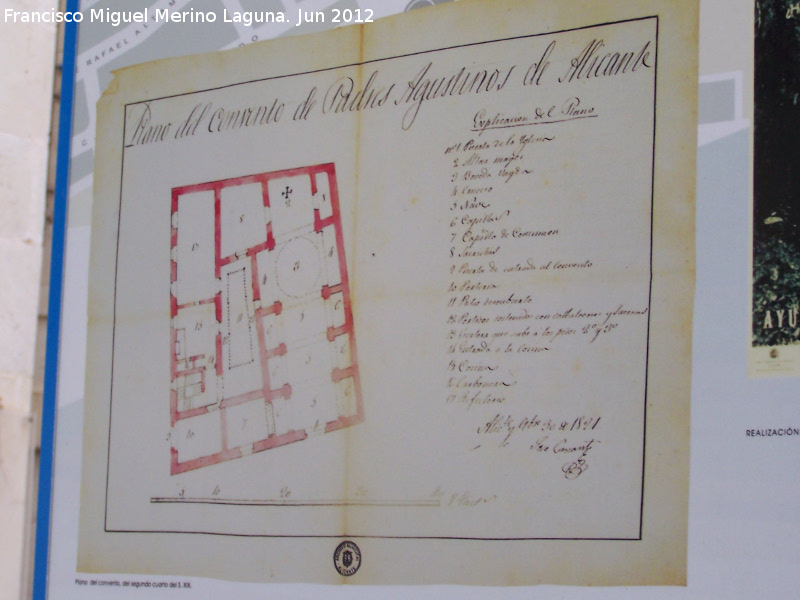 Francisco Miguel Merino Laguna. Jun 2012
C RAFAEL
Plano del Convento de Padres Agustinos de Alicante
Explicacion del Plano
nº 1 Puerta de la Yglesia
2 Altar mayor
3
4 Crucero
5 Nave
6 Capillas
7 Capilla de Comunion
8 Sacristias
9 Puerta de entrada al Convento
10 Porteria
11 Patio descubierto
12 Porticos
13 Escalera que sube a los pisos 2º y 3º
14 Entrada a la Cocina
15 Cocina
16 Carbonera
17 Refitorio
30 de 1821
AYU
REALIZACIÓN
Plano del convento, del segundo cuarto del S. XIX.